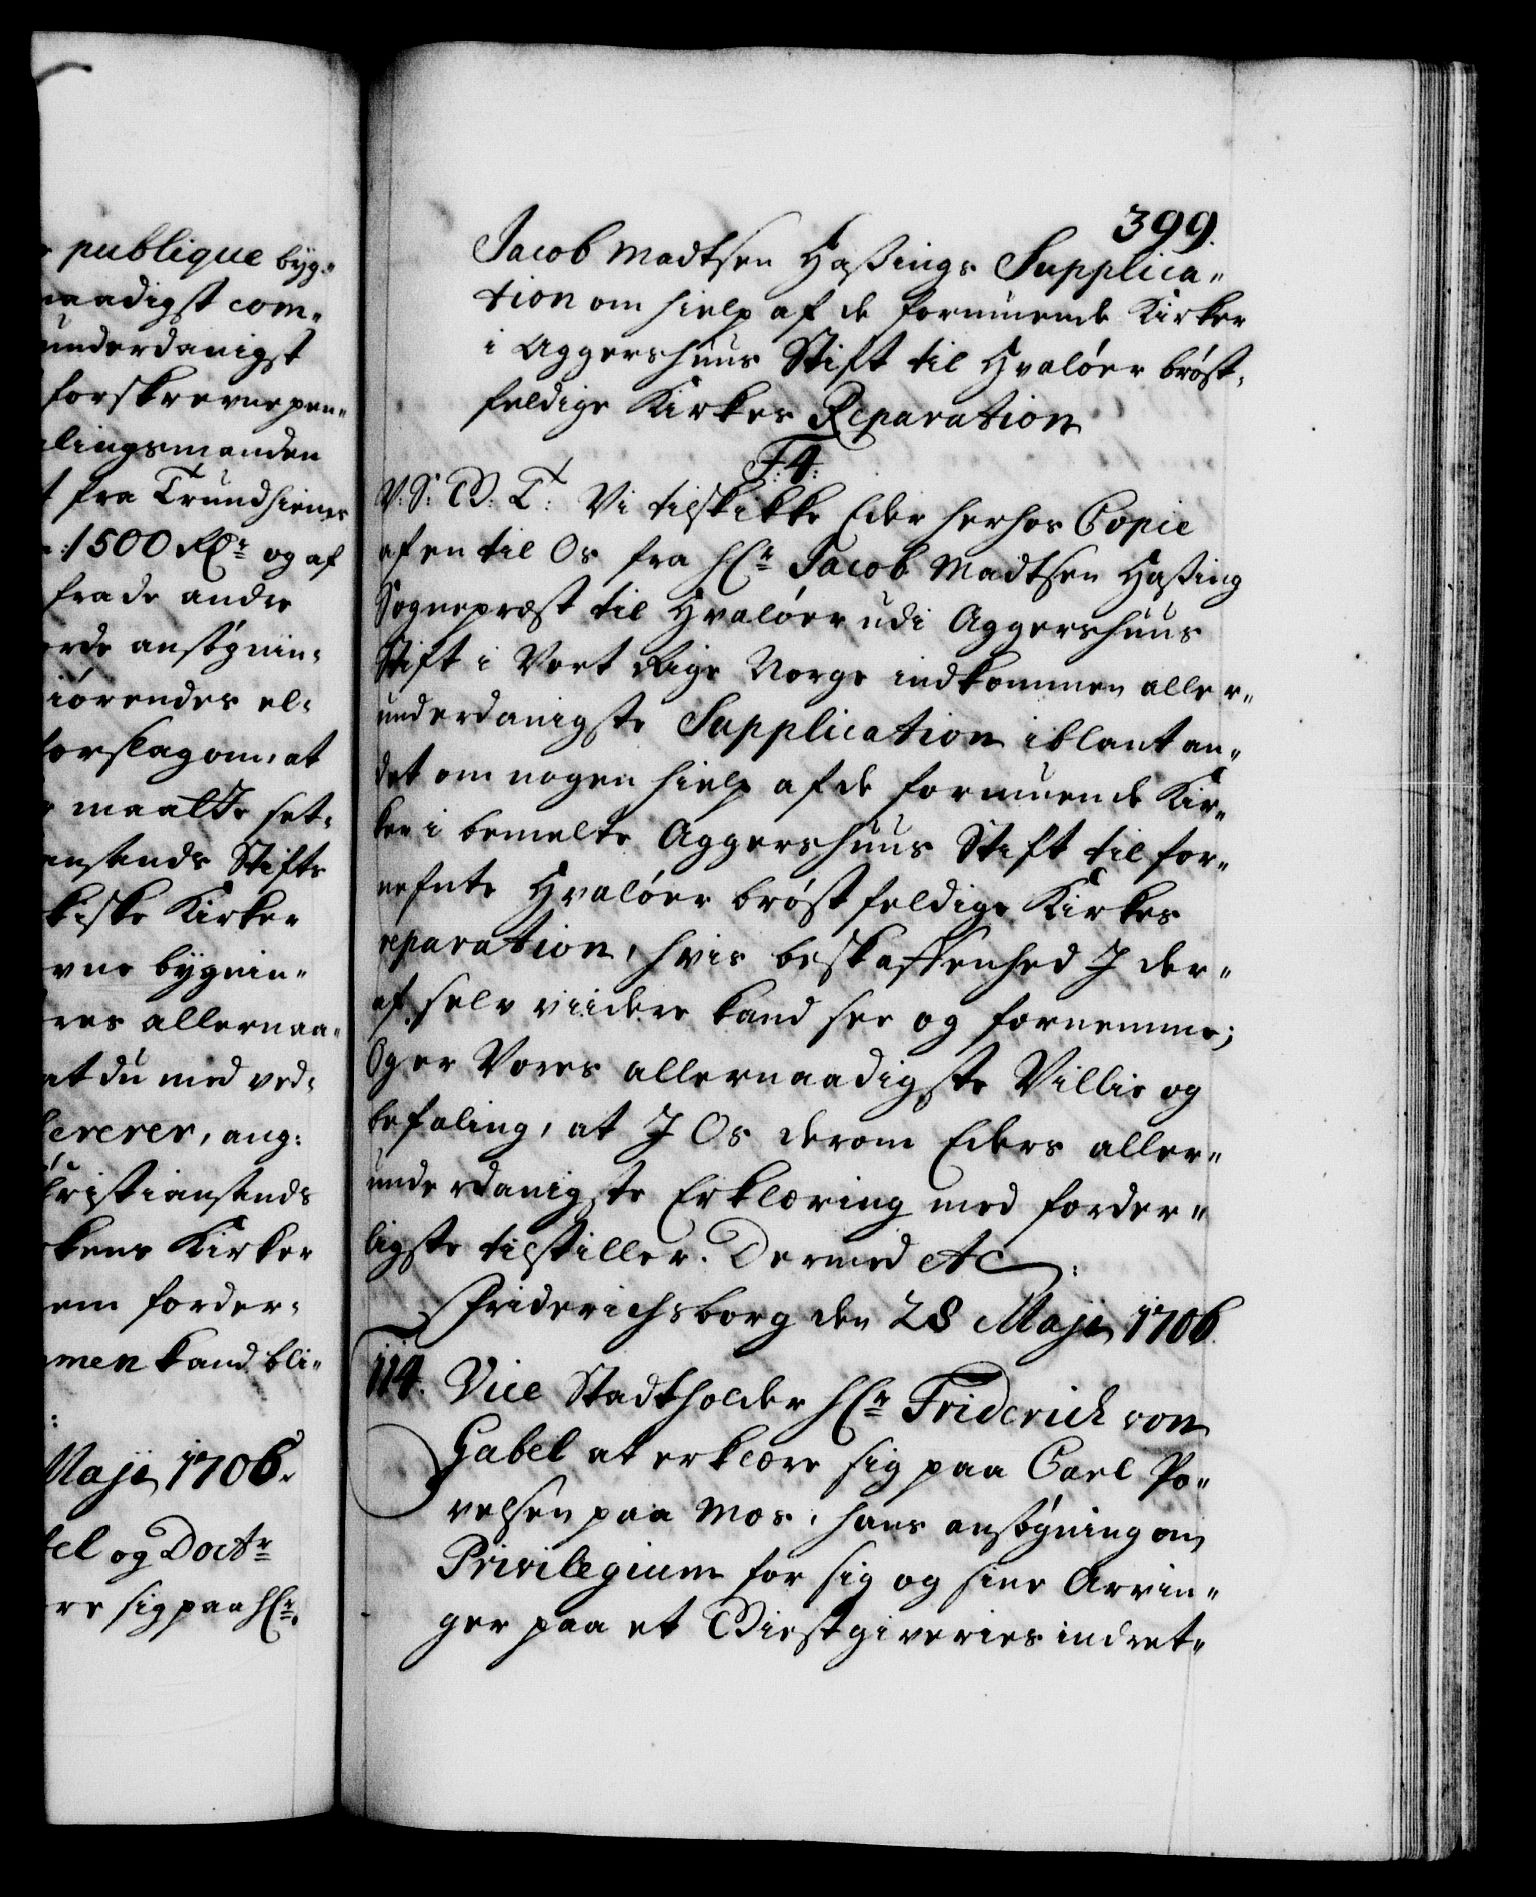 publique byg-
naadigst com-
underdanigst
forskrevne pen-
lingsmanden
fra Trundhiems
1500 Rdr og af
fra de andre
ansøgnin-
giørendes el-
forslag om, at
maatte set-
ansands Stifts
kiske Kirker
vne bygnin-
res allernaa-
at du med ved-
fererer, ang:
Christiansands
kens Kirker
em forder-
men kand bli-
Maji 1706.
bel og Doctr
re sig paa Hr.
399.
Jacob Madtsen Hassings Supplica-
tion om hielp af de formuende Kirker
i Aggershuus Stift til Hvaløer brøst-
feldige Kirkes Reparation
F: 4:
V: S: W: T: Vi tilskikke Eder herhos Copie
af en til Os fra Hr. Jacob Madtsen Hassing
Sognepræst til Hvaløer udi Aggershuus
Stift i Vort Rige Norge indkommen aller-
underdanigste Supplication iblant an-
det om nogen hielp af de formuende Kir-
ker i bemelte Aggershuus Stift til for-
nefnte Hvaløer brøstfeldige Kirkes
reparation, hvis beskaffenhed I der-
af selv viidere kand see og fornemme;
Og er Vores allernaadigste Villie og
befaling, at I Os derom Eders aller-
underdanigste Erklæring med forder-
ligste tilstiller. Dermed etc:
Friderichsborg den 28 Maji 1706.
114. Vice Stadtholder Hr. Friderich von
Gabel at erklære sig paa Carl Po-
velsen paa Mos, hans ansøgning om
Privilegium for sig og sine Arvin-
ger paa et Wiertgiveries indret-